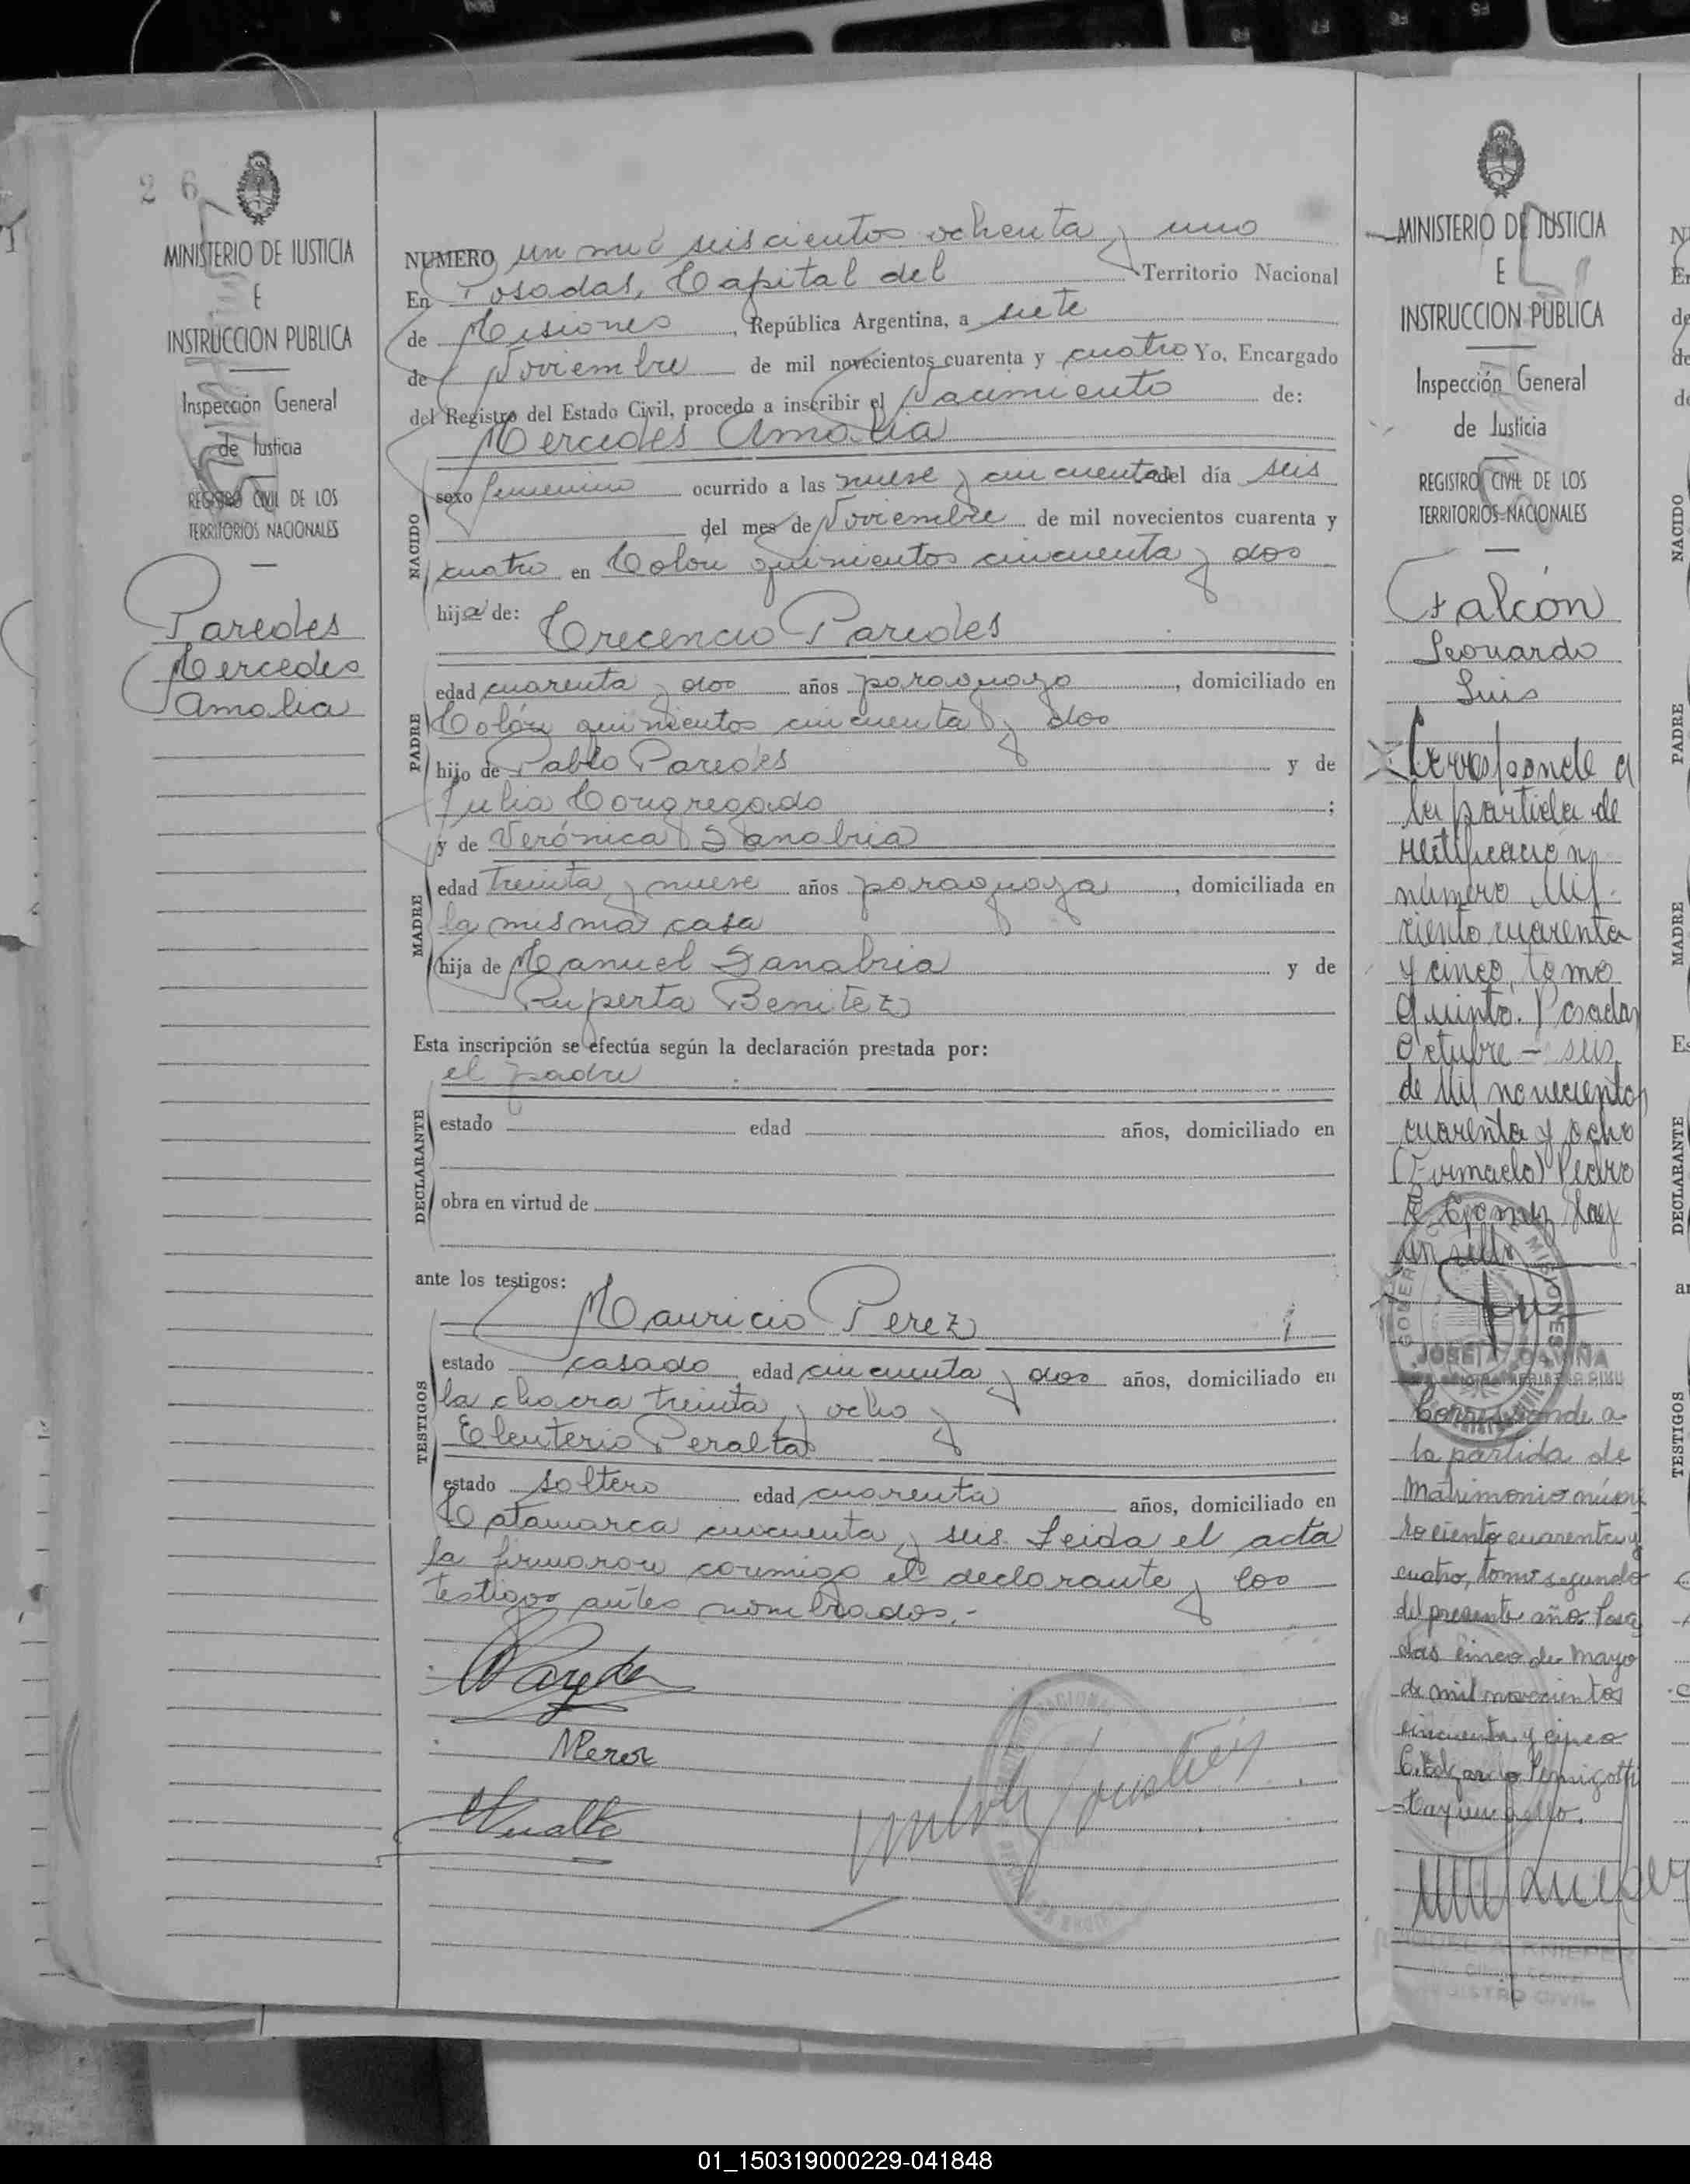 26
MINISTERIO DE JUSTICIA
E
INSTRUCCION PUBLICA
Inspección General
de Justicia
REGISTRO CIVIL DE LOS
TERRITORIOS NACIONALES
Paredes
Mercedes
Amalia
NUMERO un mil seiscientos ochenta y uno
En Posadas, Capital del Territorio Nacional
de Misiones, República Argentina, a siete
de Noviembre de mil novecientos cuarenta y cuatro Yo, Encargado
del Registro del Estado Civil, procedo a inscribir el Nacimiento de:
Mercedes Amalia
NACIDO
sexo femenino ocurrido a las nueve y cincuenta del día seis
del mes de Noviembre de mil novecientos cuarenta y
cuatro en Colón quinientos cincuenta y dos
hija de: Crecencio Paredes
PADRE
edad cuarenta y dos años paraguayo, domiciliado en
Colón quinientos cincuenta y dos
hijo de Pablo Paredes y de
Julia Congregado;
y de Verónica Sanabria
MADRE
edad treinta y nueve años paraguaya, domiciliada en
la misma casa
hija de Manuel Sanabria y de
Ruperta Benitez
Esta inscripción se efectúa según la declaración prestada por:
el padre
DECLARANTE
estado edad años, domiciliado en
obra en virtud de
ante los testigos:
Mauricio Perez
TESTIGOS
estado casado edad cincuenta y dos años, domiciliado en
la chacra treinta y ocho y
Eleuterio Peralta
estado soltero edad cuarenta años, domiciliado en
Catamarca cincuenta y seis. Leida el acta
la firmaron conmigo el declarante y los
testigos antes nombrados.-
MPerez
MINISTERIO DE JUSTICIA
E
INSTRUCCION PUBLICA
Inspección General
de Justicia
REGISTRO CIVIL DE LOS
TERRITORIOS NACIONALES
Falcón
Leonardo
Luis
Corresponde a
la partida de
rectificación
número Mil
ciento cuarenta
y cinco, tomo
quinto. Posadas
Octubre - seis
de Mil novecientos
cuarenta y ocho
(Firmado) Pedro
Gomez Hay
un sello
MISIONES
JOSE A. GAVIÑA
Corresponde a
la partida de
Matrimonio núme
ro ciento cuarenta y
cuatro, tomo segundo
del presente año. Posa
das cinco de Mayo
de mil novecientos
cincuenta y cinco
C. Edgardo
Hay un sello.
KNIEPER
REGISTRO CIVIL
NACIDO
PADRE
MADRE
DECLARANTE
TESTIGOS
01_150319000229-041848